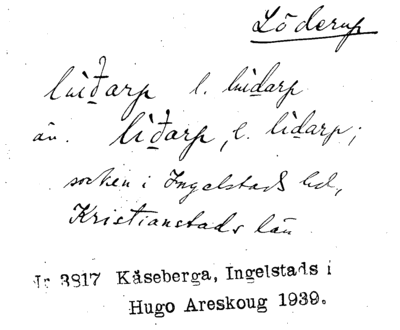 Löderup
lwiđarp l. lwidarp
än. liđarp, l. lidarp;
socken i Ingelstads hd,
Kristianstads län
Ir 3817 Kåseberga, Ingelstads i
Hugo Areskoug 1939.